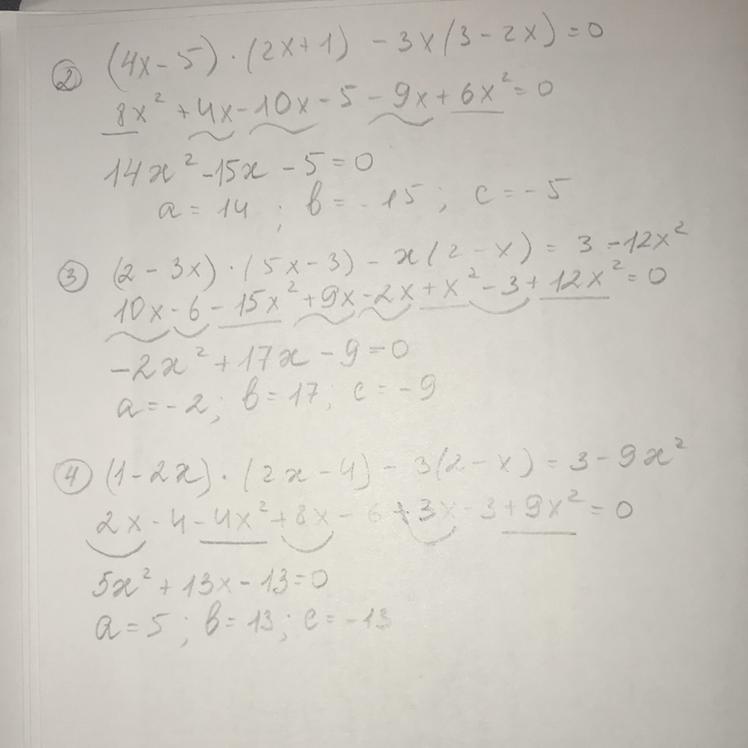 ② (4x-5)·(2x+1) -3x(3-2x)=0
8x²+4x-10x-5-9x+6x²=0
14x²-15x-5=0
a=14; b=-15; c=-5
③ (2-3x)·(5x-3)-x(2-x)=3-12x²
10x-6-15x²+9x-2x+x²-3+12x²=0
-2x²+17x-9=0
a=-2; b=17; c=-9
④ (1-2x)·(2x-4)-3(2-x)=3-9x²
2x-4-4x²+8x-6+3x-3+9x²=0
5x²+13x-13=0
a=5; b=13; c=-13